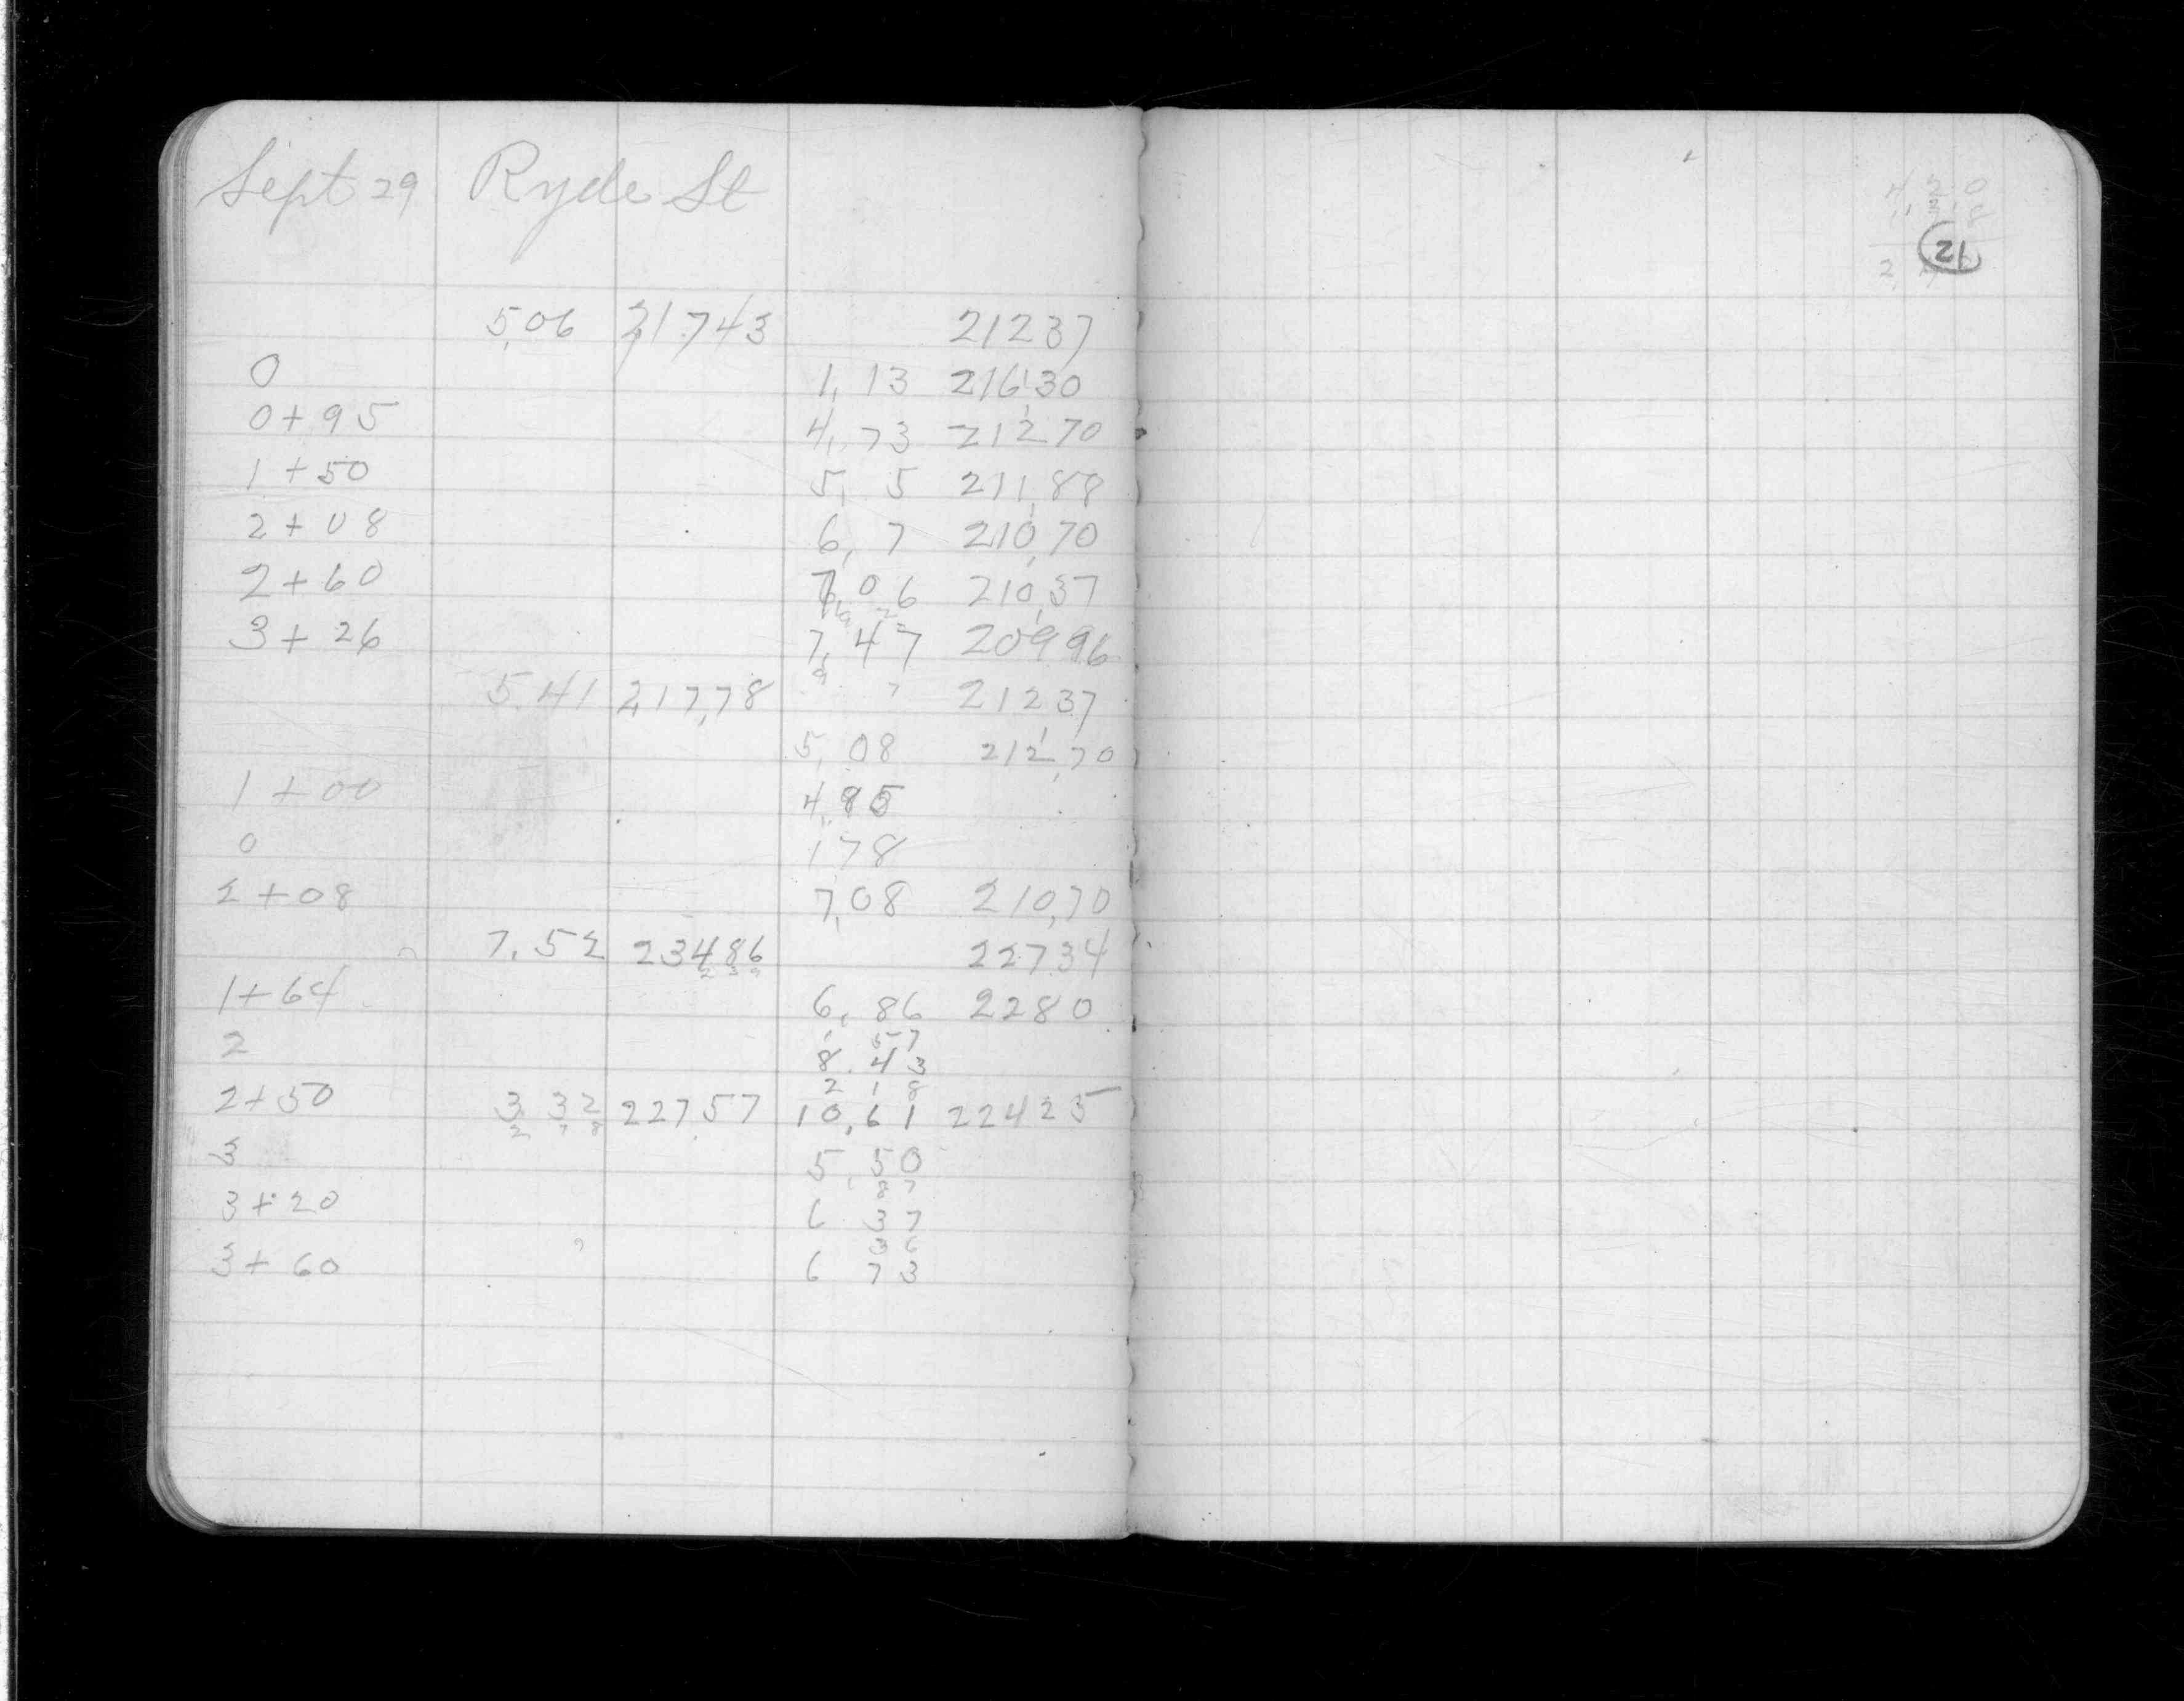 Sept 29 Ryde St
5,06 21743 21237
0 1,13 216,30
0+95 4,73 212,70
1+50 5, 5 211,88
2+08 6, 7 210,70
2+60 7,06 210,37
3+26 7,47 20996
5.41 217,78 21237
5,08 212,70
1+00 4,95
0 178
2+08 7,08 210,70
7.52 23486 22734
1+64 6,86 2280
57
2 8.43
2 1 8
2+50 3 32 22757 10,61 22425
3 5,50
87
3+20 6 37
36
3+60 6 73
4 20
21